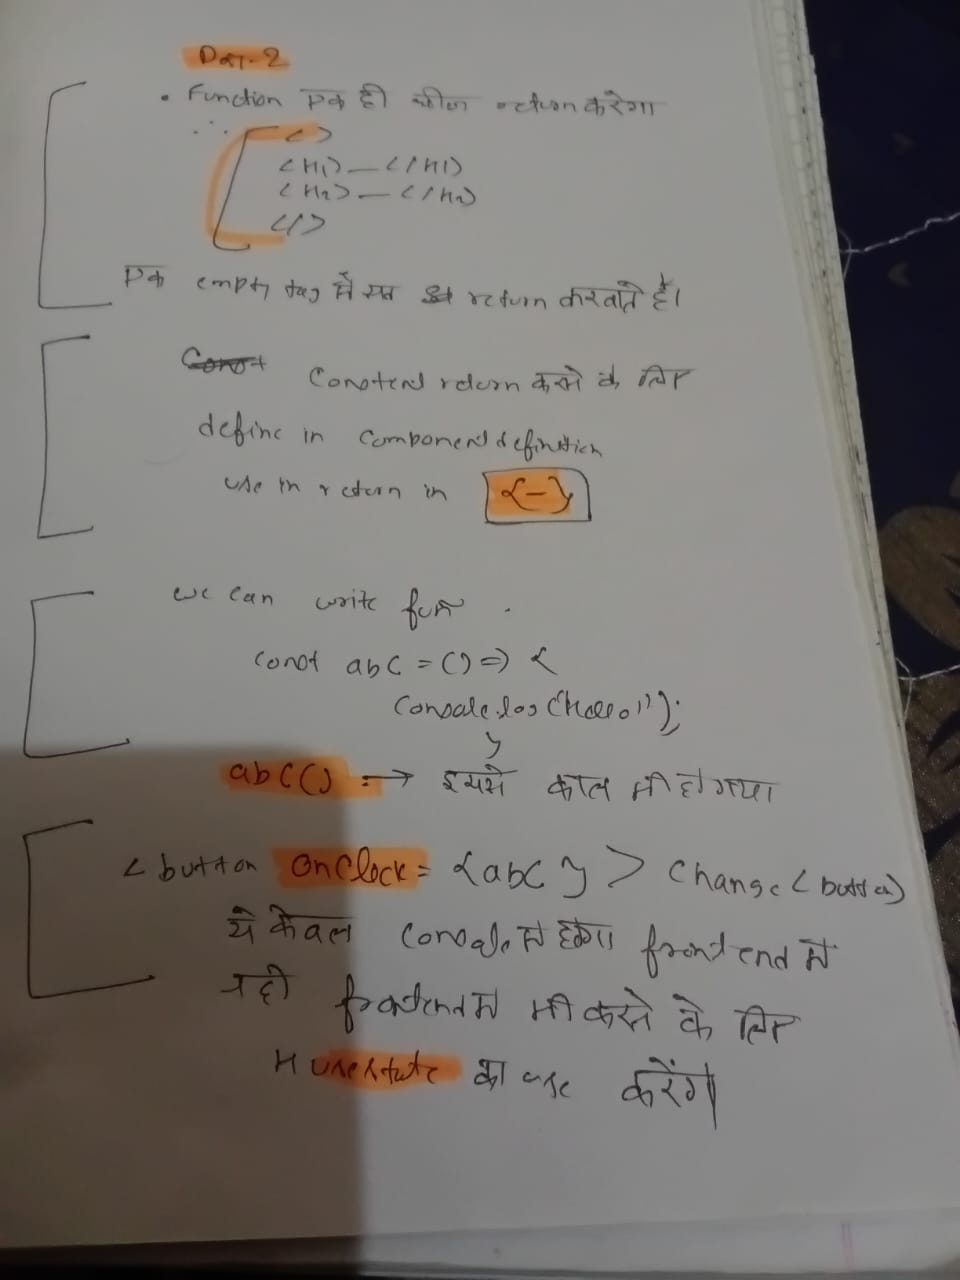 Day-2
• Function एक ही चीज return करेगा
∴ < >
<H1> — </H1>
<H2> — </H2>
</>
एक empty tag में सब return करवाते हैं।
Const
Content return करने के लिए
define in component definition
use in return in {-}
we can write fun .
const abc = () => {
console.log("Hello");
}
abc() :→ इसमे काल भी हो गया
< button onClock = {abc} > Change < button>
ये केवल console में होगा frontend में
नही frontend में भी करने के लिए
usestate का use करेंगे